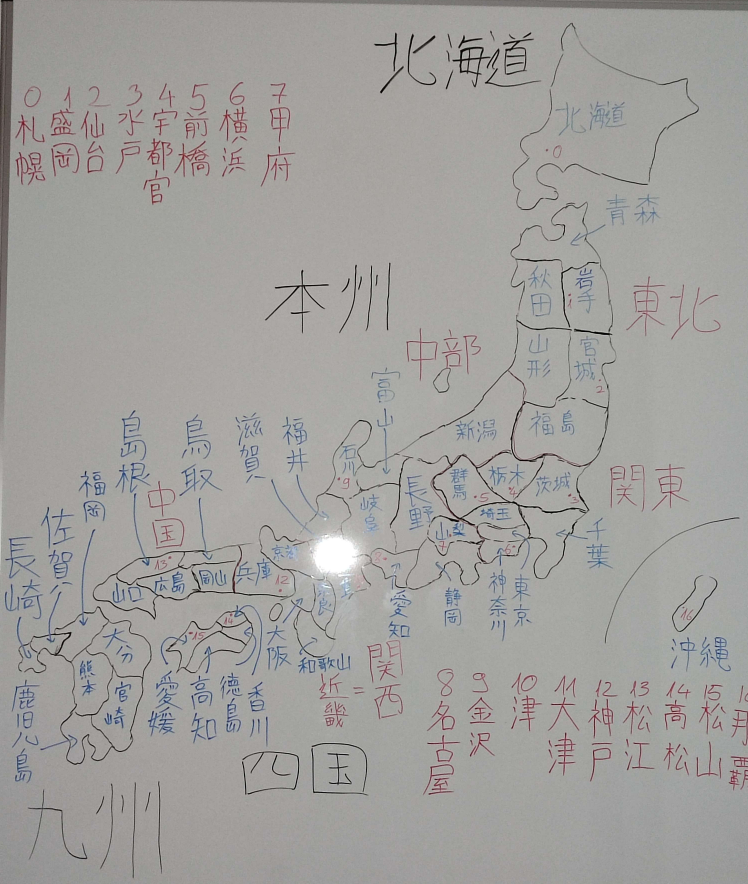 北海道
0 札幌
1 盛岡
2 仙台
3 水戸
4 宇都宮
5 前橋
6 横浜
7 甲府
北海道
0
青森
本州
秋田
岩手
1
東北
中部
山形
宮城
2
富山
新潟
福島
島根
鳥取
滋賀
福井
石川
9
群馬
栃木
茨城
3
関東
5
4
福岡
中国
岐阜
長野
埼玉
佐賀
長崎
京都
山梨
6
千葉
13
山口
広島
岡山
兵庫
12
愛知
静岡
神奈川
東京
16
沖縄
14
15
大分
熊本
宮崎
鹿児島
愛媛
高知
徳島
香川
大阪
和歌山
近畿=関西
8 名古屋
9 金沢
10 津
11 大津
12 神戸
13 松江
14 高松
15 松山
四国
九州